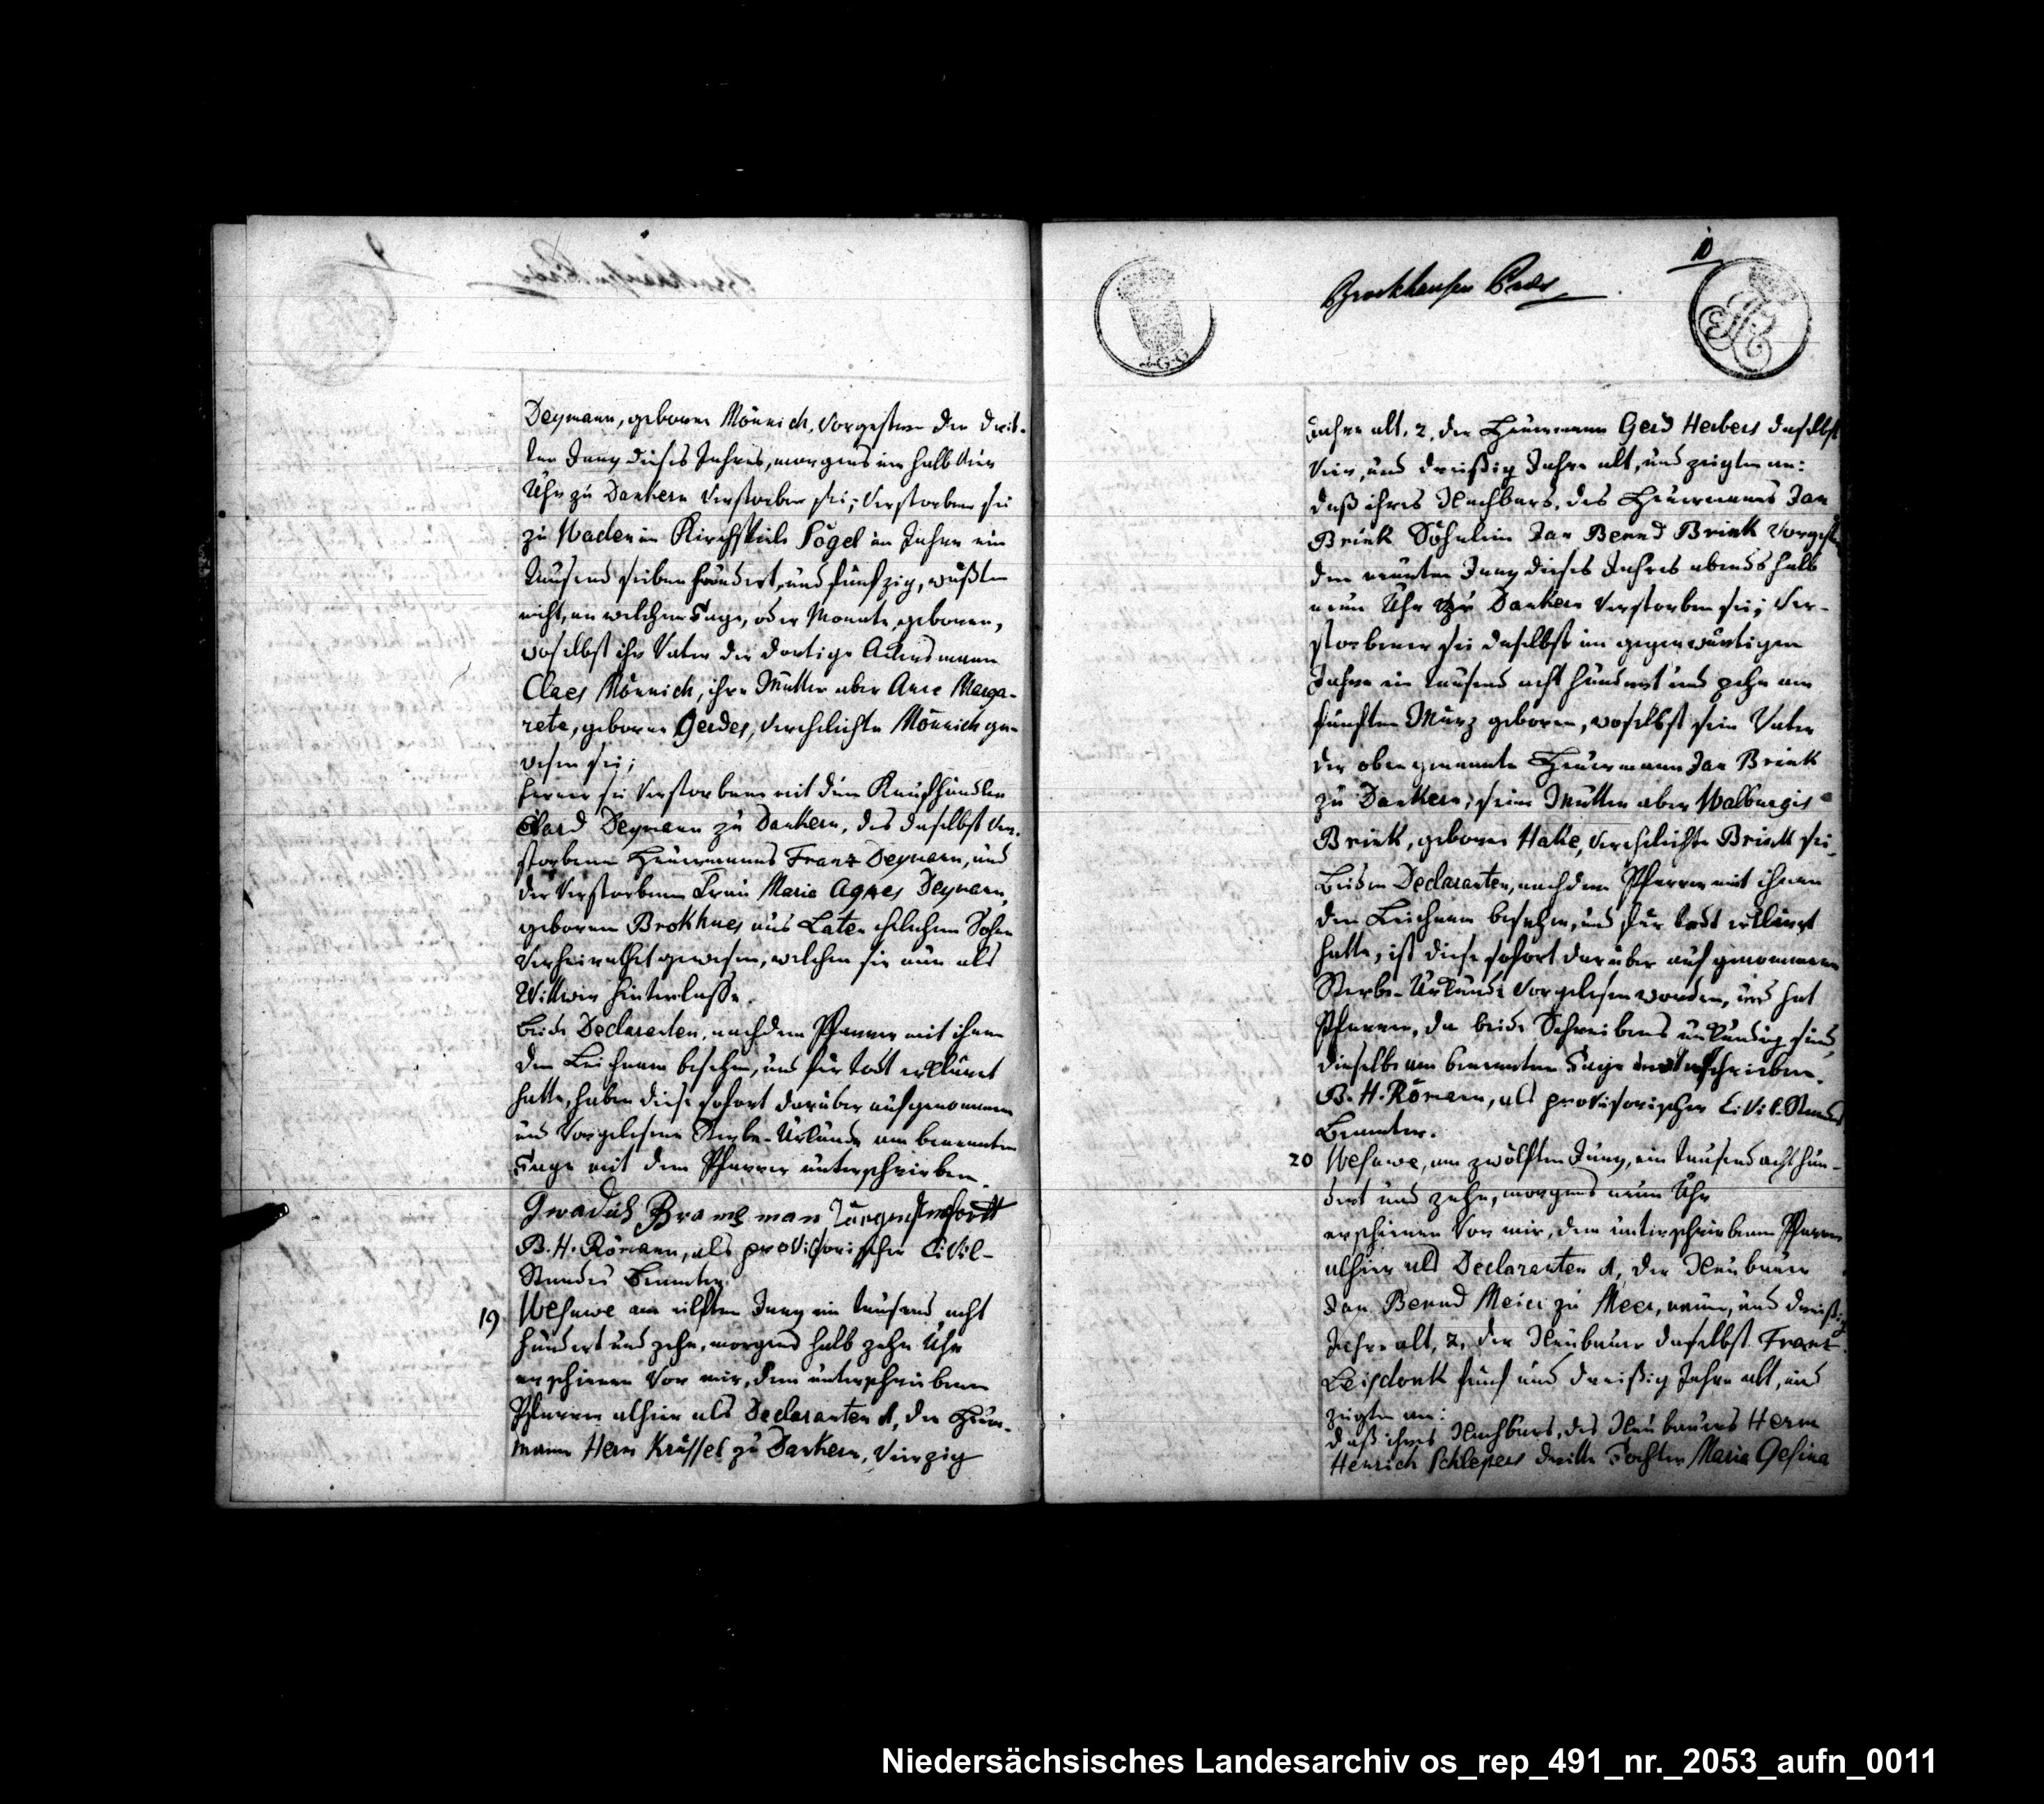 Deymann, geborene Mönnich, vorgestern den drit-
ten Juny dieses Jahres, morgens um halb vier
Uhr zu Dankern verstorben sei; verstorbene sei
zu Waden im Kirchspiele Sögel im Jahre ein
tausend sieben hundert, und fünfzig, wußten
nicht, an welchem Tage, oder Monate, geboren,
woselbst ihr Vater der dortige Ackersmann
Claes Mönnich, ihre Mutter aber Anne Marga-
rete, geborene Gerdes, verehelichte Mönnich ge-
wesen sei;
ferner sei verstorbene mit dem Kaufhändler
Deymann zu Dankern, des daselbst ver-
storbenen Heuermanns Franz Deymann, und
der verstorbenen Frau Maria Agnes Deymann,
geborenen Brokhues aus Laten ehelichem Sohne
verheirathet gewesen, welchen sie nun als
Wittwer hinterlasse.
Beide Declaranten, nachdem Pfarrer mit ihnen
den Leichnam besehen, und für todt erklärt
hatte, haben diese sofort darüber aufgenommene
und vorgelesene Sterbe-Urkunde am benannten
Tage mit dem Pfarrer unterschrieben.
B. H. Römann, als provisorischer Civil-
Standes Beamter.
19 Wesuwe am eilften Juny ein tausend acht
hundert und zehn, morgens halb zehn Uhr
erschienen vor mir, dem unterschriebenen
Pfarrer alhier als Declaranten 1, der Heuer-
mann Herm Krüssel zu Dankern, vierzig
10
Brockhausen
Jahre alt, 2, der Heuermann Gerd Herbers daselbst
vier, und dreißig Jahre alt, und zeigten an:
daß ihres Nachbars, des Heuermanns Jan
Brink Söhnlein Jan Bernd Brink vorgestern
den neunten Juny dieses Jahres abends halb
neun Uhr zu Dankern verstorben sei; Ver-
storbener sei daselbst im gegenwärtigen
Jahre ein tausend acht hundert und zehn am
fünften März geboren, woselbst sein Vater
der oben genannte Heuermann Jan Brink
zu Dankern, seine Mutter aber Walburgis
Brink, geborene Hake, verehelichte Brink sei.
Beiden Declaranten, nachdem Pfarrer mit ihnen
den Leichnam besehen, und für todt erklärt
hatte, ist diese sofort darüber aufgenommene
Sterbe-Urkunde vorgelesen worden, und hat
Pfarrer, da beide Schreibens unkundig sind,
dieselbe am benannten Tage unterschrieben.
B. H. Römann, als provisorischer Civil-Standes
Beamter.
20 Wesuwe, am zwölften Juny, ein tausend acht hun-
dert und zehn, morgens neun Uhr
erschienen vor mir, dem unterschriebenen Pfarrer
alhier als Declaranten 1, der Neubauer
Jan Bernd Meier zu Meer, neun, und dreißig
Jahre alt, 2, der Neubauer daselbst Franz
Leisdonk fünf und dreißig Jahre alt, und
zeigten an:
daß ihres Nachbars, des Neubauers Herm
Henrich Schlepers dritte Tochter Maria Gesina
Niedersächsisches Landesarchiv os_rep_491_nr._2053_aufn_0011